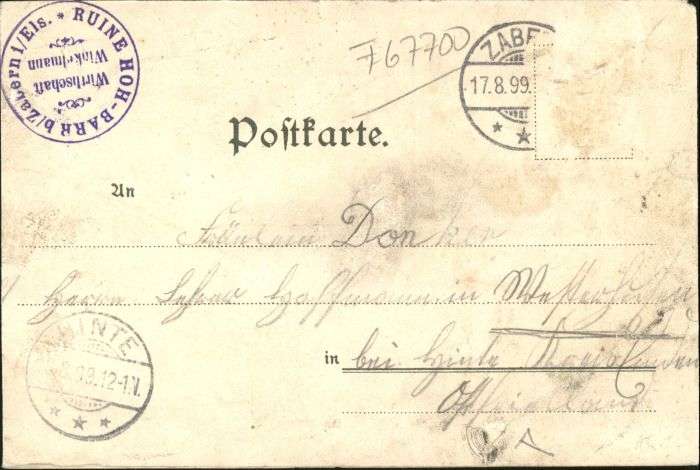 * RUINE HOH-BARR b/Zabern i/Els.
Wirthschaft
Winkelmann
767700
ZABE
17.8.99.
Poſtkarte.
An
Fräulein Donker
Herrn Lehrer Hoffmann in
HINTE
12-1.N.
in bei Hinte